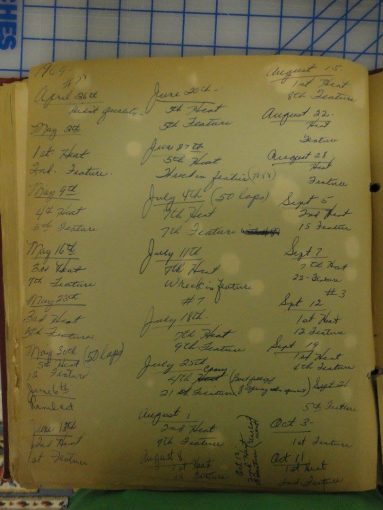 CHES
April 26th
May 2th
1st Heat
2nd Feature
May 9th
4th Heat
6th Feature
May 16th
3rd Heat
9th Feature
May 23th
3rd Heat
Feature
May 30th (50 laps)
5th Heat
12 Feature
June 6th
Rained out
June 13th
2nd Heat
1st Feature
June 20th
5th Heat
5th Feature
June 27th
5th Heat
3rd in feature
July 4th (50 laps)
7th Heat
7th Feature
July 11th
7th Heat
Wreck in feature
#7
July 18th
7th Heat
9th Feature
July 25th
4th
21st Feature
August 1
2nd Heat
8th Feature
August 8
1st Heat
Feature
August 15
1st Heat
8th Feature
August 22
Heat
Feature
August 28
Heat
Feature
Sept 5
2nd Heat
15 Feature
Sept 7
7th Heat
22 Feature
#3
Sept 12
1st Heat
12 Feature
Sept 19
1st Heat
6th Feature
Sept 21
5th Feature
Oct 3
1st Feature
Oct 11
1st Heat
2nd Feature